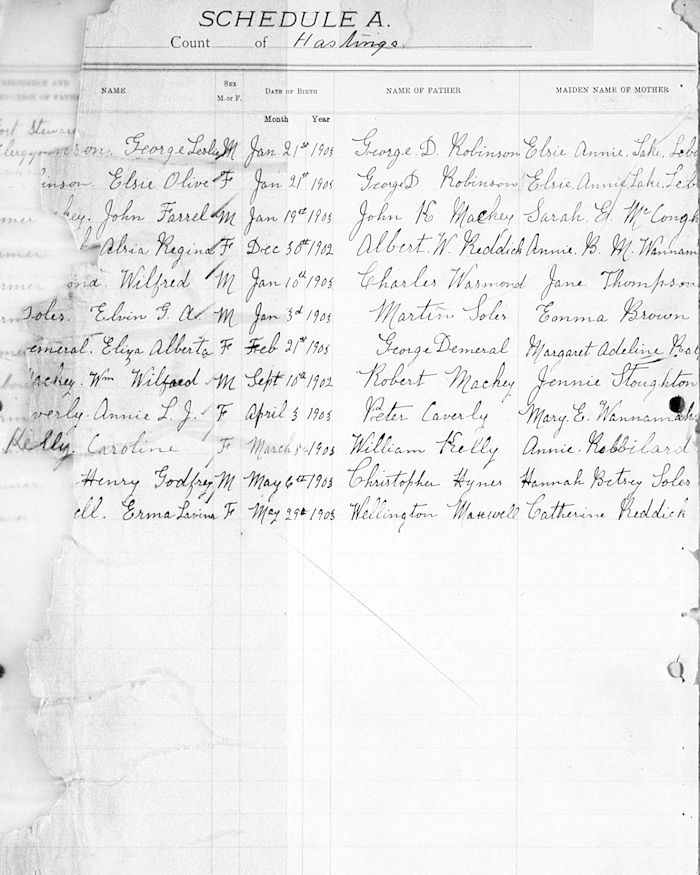 SCHEDULE A.
Count of Hastings
NAME SEX M. or F. DATE OF BIRTH NAME OF FATHER MAIDEN NAME OF MOTHER
Month Year
son. George Leslie M Jan. 21st 1903 George D. Robinson Elsie Annie. Lake.
inson. Elsie Olive F Jan 21st 1903 George D Robinson Elsie. Annie Lake.
key. John Farrel M Jan 19th 1903 John K Mackey Sarah. E. McCongh
Alria Regina F Dec 30th 1902 Albert. W. Reddick Annie. B. M. Wannam
ond. Wilfred M Jan 10th 1903 Charles Warmond Jane Thompson
Soles. Elvin G. A. M Jan 3d 1903 Martin Soles Emma Brown
emeral. Eliza Alberta F Feb 21st 1903 George Demeral Margaret Adeline
ackey. Wm Wilfred M Sept 10th 1902 Robert Mackey Jennie Stoughton
verly. Annie L. J. F April 3 1903 Peter Caverly Mary. E. Wannamak
Kelly. Caroline F March 8 1903 William Kelly Annie. Robbilard
Henry Godfrey M May 6th 1903 Christopher Hynes Hannah Betsy Soles
ell. Erma Lavina F May 29th 1903 Wellington Maxwell Catherine Reddick